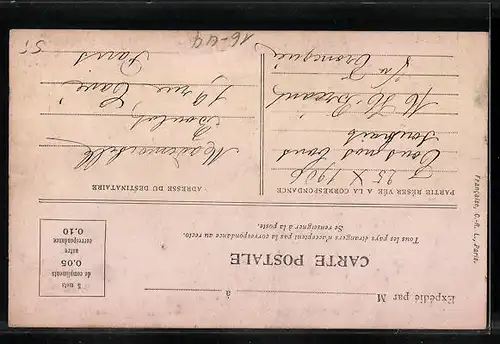 Expédié par M
à
CARTE POSTALE
Tous les pays étrangers n'acceptent pas la correspondance au recto.
Se renseigner à la poste.
5 mots
de compliments
0.05
autre
correspondance
0.10
PARTIE RÉSERVÉE A LA CORRESPONDANCE
25 X 1906
Tous nos bons
Souhaits
ADRESSE DU DESTINATAIRE
Mademoiselle
19 rue
Paris
16-44
Française, C.-R. L., Paris.